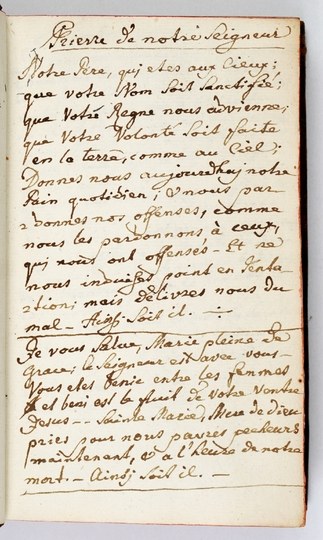 Prierre de notre Seigneur
Notre Pere, qui etes aux Cieux;
que votre Nom soit Sanctifié;
que Votre Regne nous advienne;
que Votre Volonté Soit faite
en la terre, comme au Ciel;
Donnes nous aujourdhuy notre
Pain quotidien, & nous par-
donnes nos offenses, comme
nous les pardonnons à ceux,
qui nous ont offensés - Et ne
nous induises point en Tenta-
tion; mais delivres nous du
mal - Ainsi soit il. -
Je vous Salue, Marie pleine de
Grace; le Seigneur est avec vous -
Vous etes benie entre les femmes
& et beni est le fruit de votre Ventre
Jesus - - Sainte Marie, Mere de dieu
pries pour nous pauvres pecheurs
maintenant, & a l'heure de notre
mort. - Ainsi soit il. -